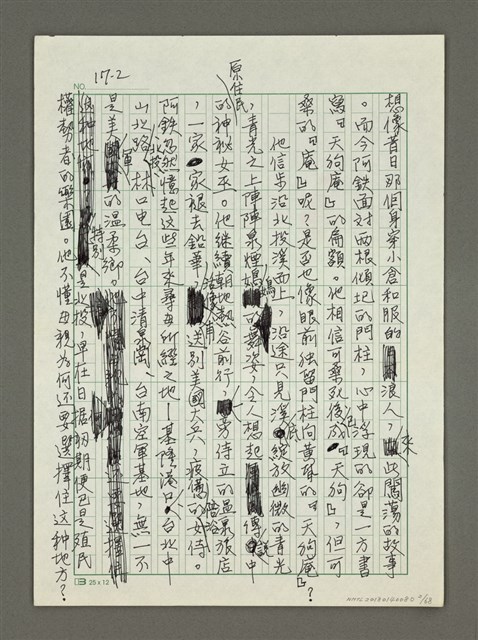 17-2
NO.
想像昔日那個身穿小倉和服的浪人,來此闖蕩的故事
。而今阿鉄面对兩根傾圮的門柱,心中浮現的卻是一方書
寫『天狗庵』的匾額。他相信可桑死後成了『天狗』,但可
桑的『庵』呢?是否也像眼前独留門柱向黄昏的『天狗庵』?
他信步沿北投溪而上,沿途只見溪底綻放幽微的青光
,青光之上陣陣泉煙嫣嫣的舞姿,令人想起傳說中
原住民的神秘女巫。他继續朝地熱谷前行,旁侍立的温泉旅店
,一家家褪去鉛華,送別美國大兵,疲倦的女侍。
阿鉄忽然憶起这些年來尋母所經之地—基隆港口、台北中
山北路、北投、林口电台、台中清泉崗、台南空軍基地,無一不
是美軍的温柔鄉。特別
是北投,早在日据初期便已是殖民
權勢者的樂園。他不懂母親為何还要選擇住这种地方?
25 x 12